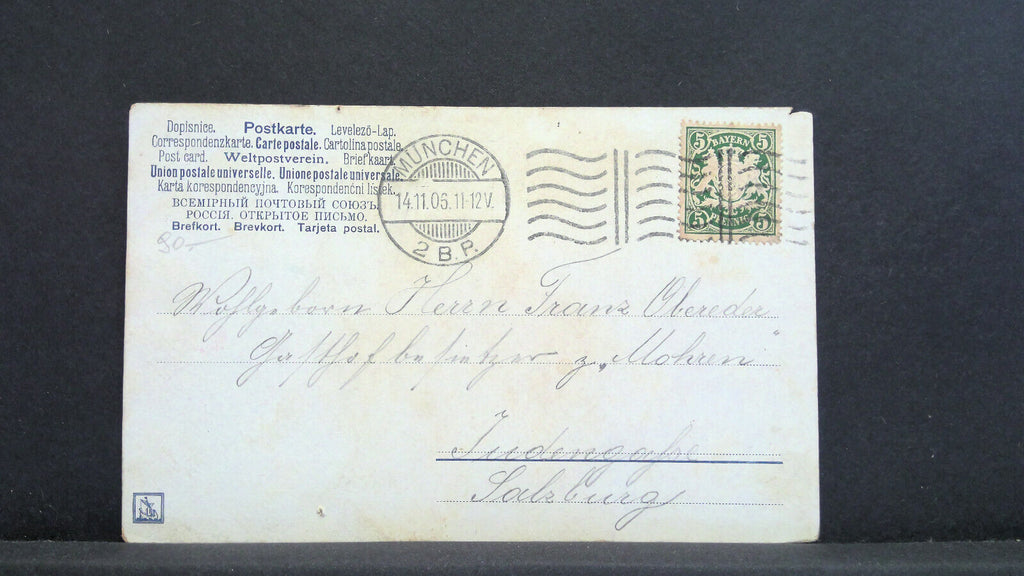 Dopisnice. Postkarte. Levelező-Lap.
Correspondenzkarte. Carte postale. Cartolina postale.
Post card. Weltpostverein. Briefkaart.
Union postale universelle. Unione postale universale.
Karta korespondencyjna. Korespondenční lístek.
ВСЕМІРНЫЙ ПОЧТОВЫЙ СОЮЗЪ.
РОССІЯ. ОТКРЫТОЕ ПИСЬМО.
Brefkort. Brevkort. Tarjeta postal.
90.-
MÜNCHEN
14.11.06.11-12V.
2 B.P.
5 BAYERN 5
5 PFENNIG 5
Wohlgeborn Herrn Franz Obereder
Gasthofbesitzer z. „Mohren"
Judengasse
Salzburg